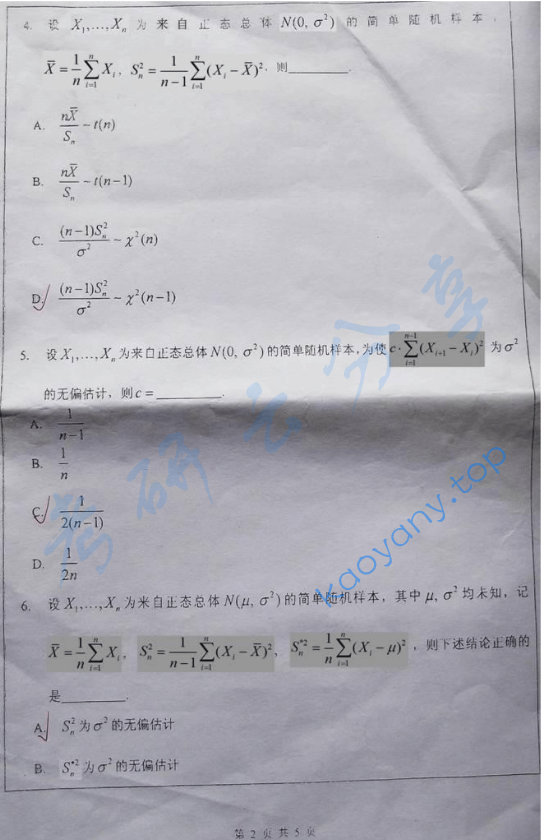 4. 设 X₁,…,Xₙ 为来自正态总体 N(0, σ²) 的简单随机样本，
X̄ = 1/n ∑ᵢ₌₁ⁿ Xᵢ, Sₙ² = 1/(n−1) ∑ᵢ₌₁ⁿ (Xᵢ − X̄)², 则______.
A. nX̄/Sₙ ~ t(n)
B. nX̄/Sₙ ~ t(n−1)
C. (n−1)Sₙ²/σ² ~ χ²(n)
D. (n−1)Sₙ²/σ² ~ χ²(n−1)
5. 设 X₁,…,Xₙ 为来自正态总体 N(0, σ²) 的简单随机样本, 为使 c·∑ᵢ₌₁ⁿ⁻¹ (Xᵢ₊₁ − Xᵢ)² 为 σ²
的无偏估计，则 c = ______.
A. 1/(n−1)
B. 1/n
C. 1/(2(n−1))
D. 1/(2n)
6. 设 X₁,…,Xₙ 为来自正态总体 N(μ, σ²) 的简单随机样本，其中 μ, σ² 均未知，记
X̄ = 1/n ∑ᵢ₌₁ⁿ Xᵢ, Sₙ² = 1/(n−1) ∑ᵢ₌₁ⁿ (Xᵢ − X̄)², Sₙ*² = 1/n ∑ᵢ₌₁ⁿ (Xᵢ − μ)², 则下述结论正确的
是______.
A. Sₙ² 为 σ² 的无偏估计
B. Sₙ*² 为 σ² 的无偏估计
第 2 页 共 5 页
考研云分享
kaoyany.top